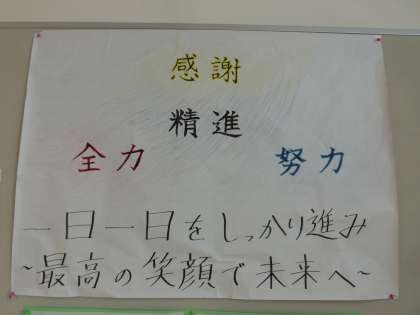 感謝
精進
全力 努力
一日一日をしっかり進み
~最高の笑顔で未来へ~